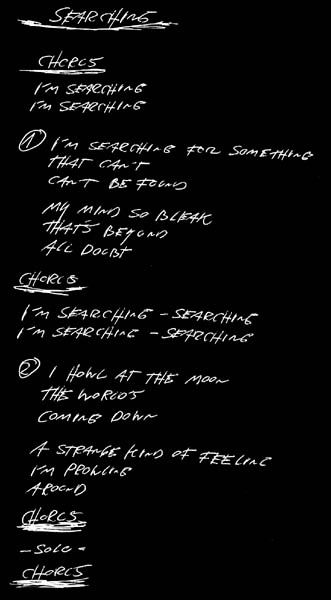 SEARCHING
CHORUS
I'M SEARCHING
I'M SEARCHING
① I'M SEARCHING FOR SOMETHING
THAT CAN'T
CAN'T BE FOUND
MY MIND SO BLEAK
THAT'S BEYOND
ALL DOUBT
CHORUS
I'M SEARCHING - SEARCHING
I'M SEARCHING - SEARCHING
② I HOWL AT THE MOON
THE WORLDS
COMING DOWN
A STRANGE KIND OF FEELING
I'M PROWLING
AROUND
CHORUS
- SOLO -
CHORUS